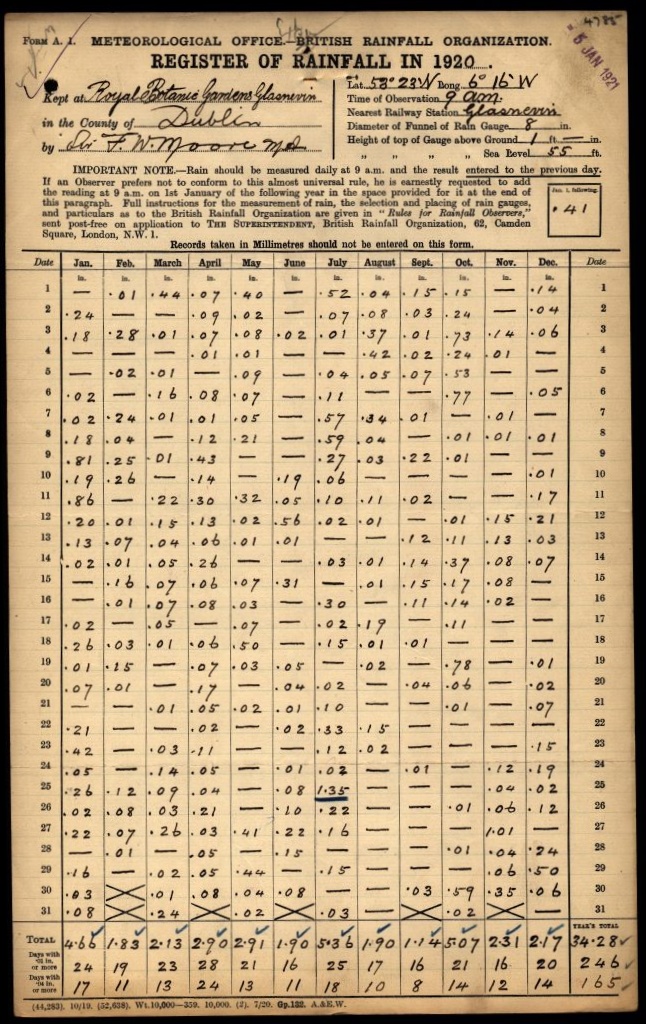 4785
5 JAN 1921
FORM A. 1. METEOROLOGICAL OFFICE.—BRITISH RAINFALL ORGANIZATION.
REGISTER OF RAINFALL IN 1920.
Kept at Royal Botanic Gardens Glasnevin
in the County of Dublin
by Sir F. W. Moore M.A.
Lat. 53° 23 W Long. 6° 15 W
Time of Observation 9 a.m.
Nearest Railway Station Glasnevin
Diameter of Funnel of Rain Gauge 8 in.
Height of top of Gauge above Ground 1 ft. — in.
" " " " Sea Level 55 ft.
IMPORTANT NOTE.—Rain should be measured daily at 9 a.m. and the result entered to the previous day.
If an Observer prefers not to conform to this almost universal rule, he is earnestly requested to add
the reading at 9 a.m. on 1st January of the following year in the space provided for it at the end of
this paragraph. Full instructions for the measurement of rain, the selection and placing of rain gauges,
and particulars as to the British Rainfall Organization are given in "Rules for Rainfall Observers,"
sent post-free on application to THE SUPERINTENDENT, British Rainfall Organization, 62, Camden
Square, London, N.W. 1.
Jan. 1, following.
.41
Records taken in Millimetres should not be entered on this form.
Date Jan. Feb. March April May June July August Sept. Oct. Nov. Dec. Date
in. in. in. in. in. in. in. in. in. in. in. in.
1 — .01 .44 .07 .40 — .52 .04 .15 .15 — .14 1
2 .24 — — .09 .02 — .07 .08 .03 .24 — .04 2
3 .18 .28 .01 .07 .08 .02 .01 .37 .01 .73 .14 .06 3
4 — — — .01 .01 — — .42 .02 .24 .01 — 4
5 — .02 .01 — .09 — .04 .05 .07 .53 — — 5
6 .02 — .16 .08 .07 — .11 — — .77 — .05 6
7 .02 .24 .01 .01 .05 — .57 .34 .01 — .01 — 7
8 .18 .04 — .12 .21 — .59 .04 — .01 .01 .01 8
9 .81 .25 .01 .43 — — .27 .03 .22 .01 — — 9
10 .19 .26 — .14 — .19 .06 — — — — .01 10
11 .86 — .22 .30 .32 .05 .10 .11 .02 — — .17 11
12 .20 .01 .15 .13 .02 .56 .02 .01 — .01 .15 .21 12
13 .13 .07 .04 .06 .01 .01 — — .12 .11 .13 .03 13
14 .02 .01 .05 .26 — — .03 .01 .14 .37 .08 .07 14
15 — .16 .07 .06 .07 .31 — .01 .15 .17 .08 — 15
16 — .01 .07 .08 .03 — .30 — .11 .14 .02 — 16
17 .02 — .05 — .07 — .02 .19 — .11 — — 17
18 .26 .03 .01 .06 .50 — .15 .01 .01 — — — 18
19 .01 .15 — .07 .03 .05 — .02 — .78 — .01 19
20 .07 .01 — .17 — .04 .02 — .04 .06 — .02 20
21 — — .01 .05 .02 .01 .10 — — .01 — .07 21
22 .21 — — .02 — .02 .33 .15 — — — — 22
23 .42 — .03 .11 — — .12 .02 — — — .15 23
24 .05 — .14 .05 — .01 .02 — .01 — .12 .19 24
25 .26 .12 .09 .04 — .08 1.35 — — — .04 .02 25
26 .02 .08 .03 .21 — .10 .22 — — .01 .06 .12 26
27 .22 .07 .26 .03 .41 .22 .16 — — — 1.01 — 27
28 — .01 — .05 — .15 — — — .01 .04 .24 28
29 .16 — .02 .05 .44 — .15 — — — .06 .50 29
30 .03 .01 .08 .04 .08 — — .03 .59 .35 .06 30
31 .08 .24 .02 .03 — .02 — 31
YEAR'S TOTAL
TOTAL 4.66 1.83 2.13 2.90 2.91 1.90 5.36 1.90 1.14 5.07 2.31 2.17 34.28
Days with .01 in. or more 24 19 23 28 21 16 25 17 16 21 16 20 246
Days with .04 in. or more 17 11 13 24 13 11 18 10 8 14 12 14 165
(44,283). 10/19. (52,638). Wt.10,000—359. 10,000. (2). 7/20. Gp.132. A.&E.W.